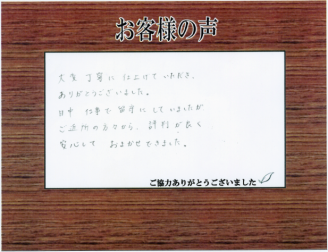 お客様の声
大変丁寧に仕上げていただき、
ありがとうございました。
日中 仕事で留守にしていましたが
ご近所の方々から、評判が良く
安心して おまかせできました。
ご協力ありがとうございました